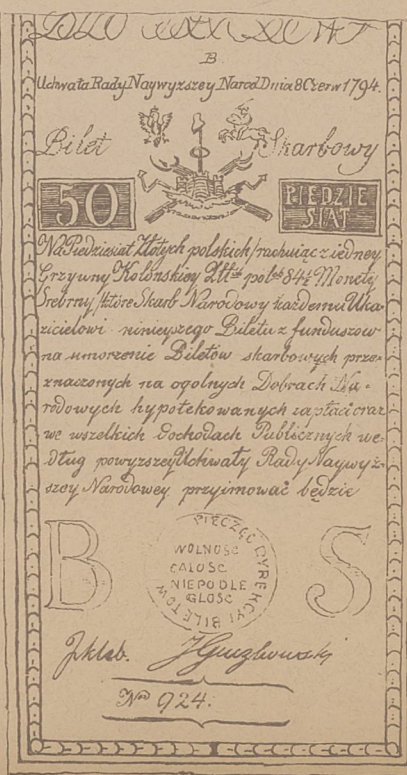 B
Uchwała Rady Naywyzszey Narod Dnia 8 Czerw 1794.
Bilet Skarbowy
50 PIEDZIE
SIAT
Na Piedziesiat Złotych polskich /rachuiąc z iedney
Grzywny Kolonskiey Złtch polch 84½ Monety
Srebrny/ które Skarb Narodowy każdemu Uka-
zicielowi ninieyszego Biletu z funduszow
na umorzenie Biletow skarbowych prze-
znaczonych na ogolnych Dobrach Na-
rodowych hypotekowanych zapłaci oraz
we wszelkich Dochodach Publicznych we-
dług powyzszey Uchwały Rady Naywyż-
szey Narodowey przyimować będzie
B S
PIECZĘĆ DYREKCYI BILETOW
WOLNOSC
CAŁOSC
NIEPODLE
GLOSC
No 924.